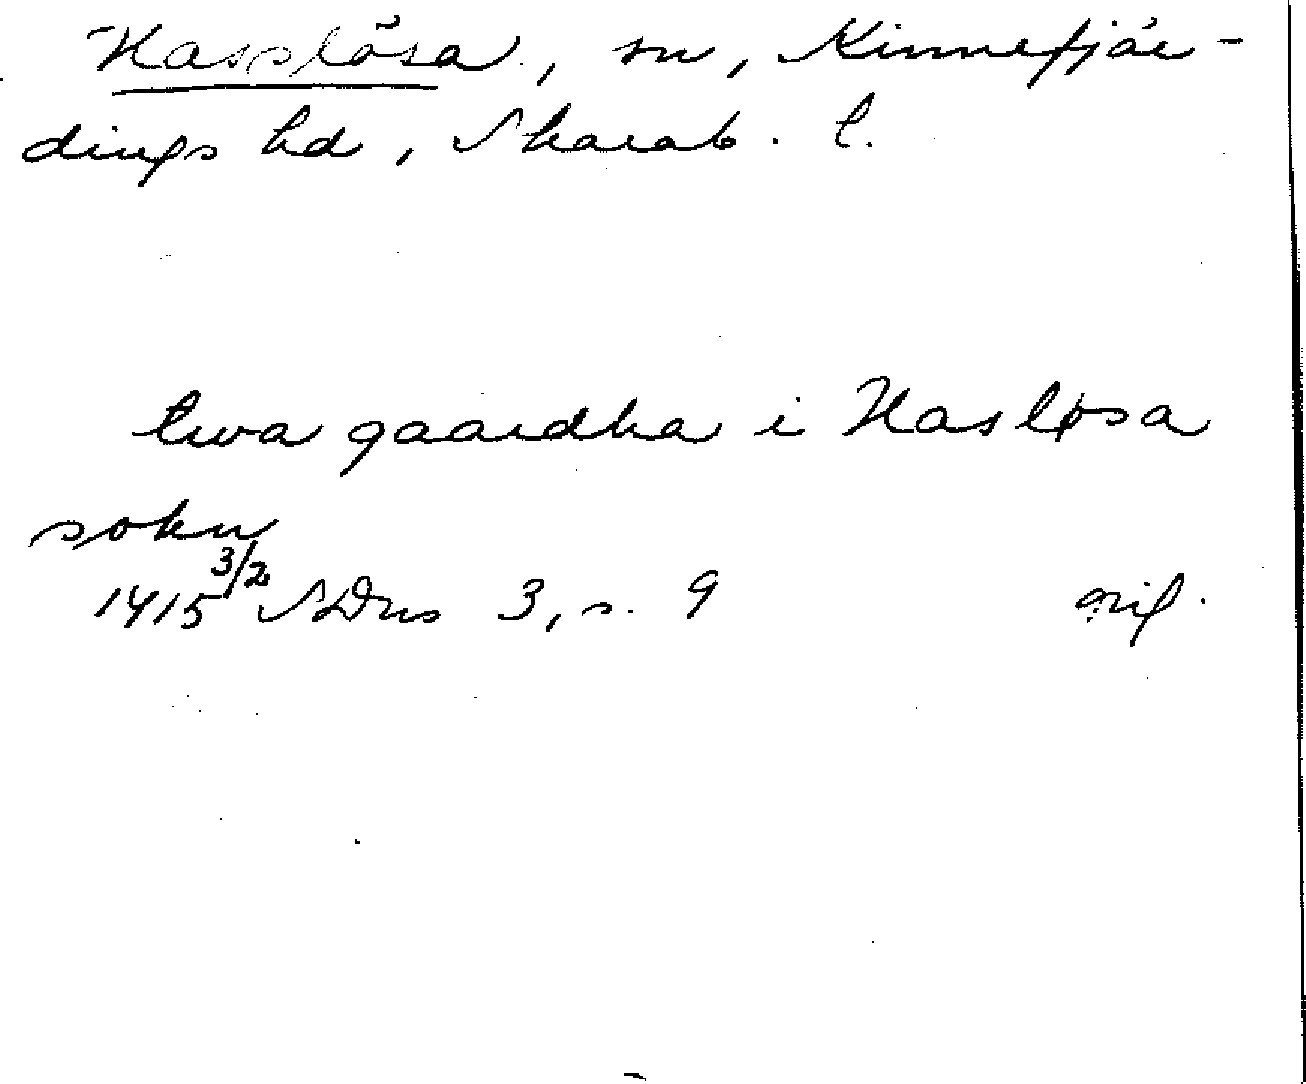 Hasslösa, sn, Kinnefjär-
dings hd, Skarab. l.
twa gaardha i Hasløsa
sokn
1415 3/2 SDns 3, s. 9 orig.